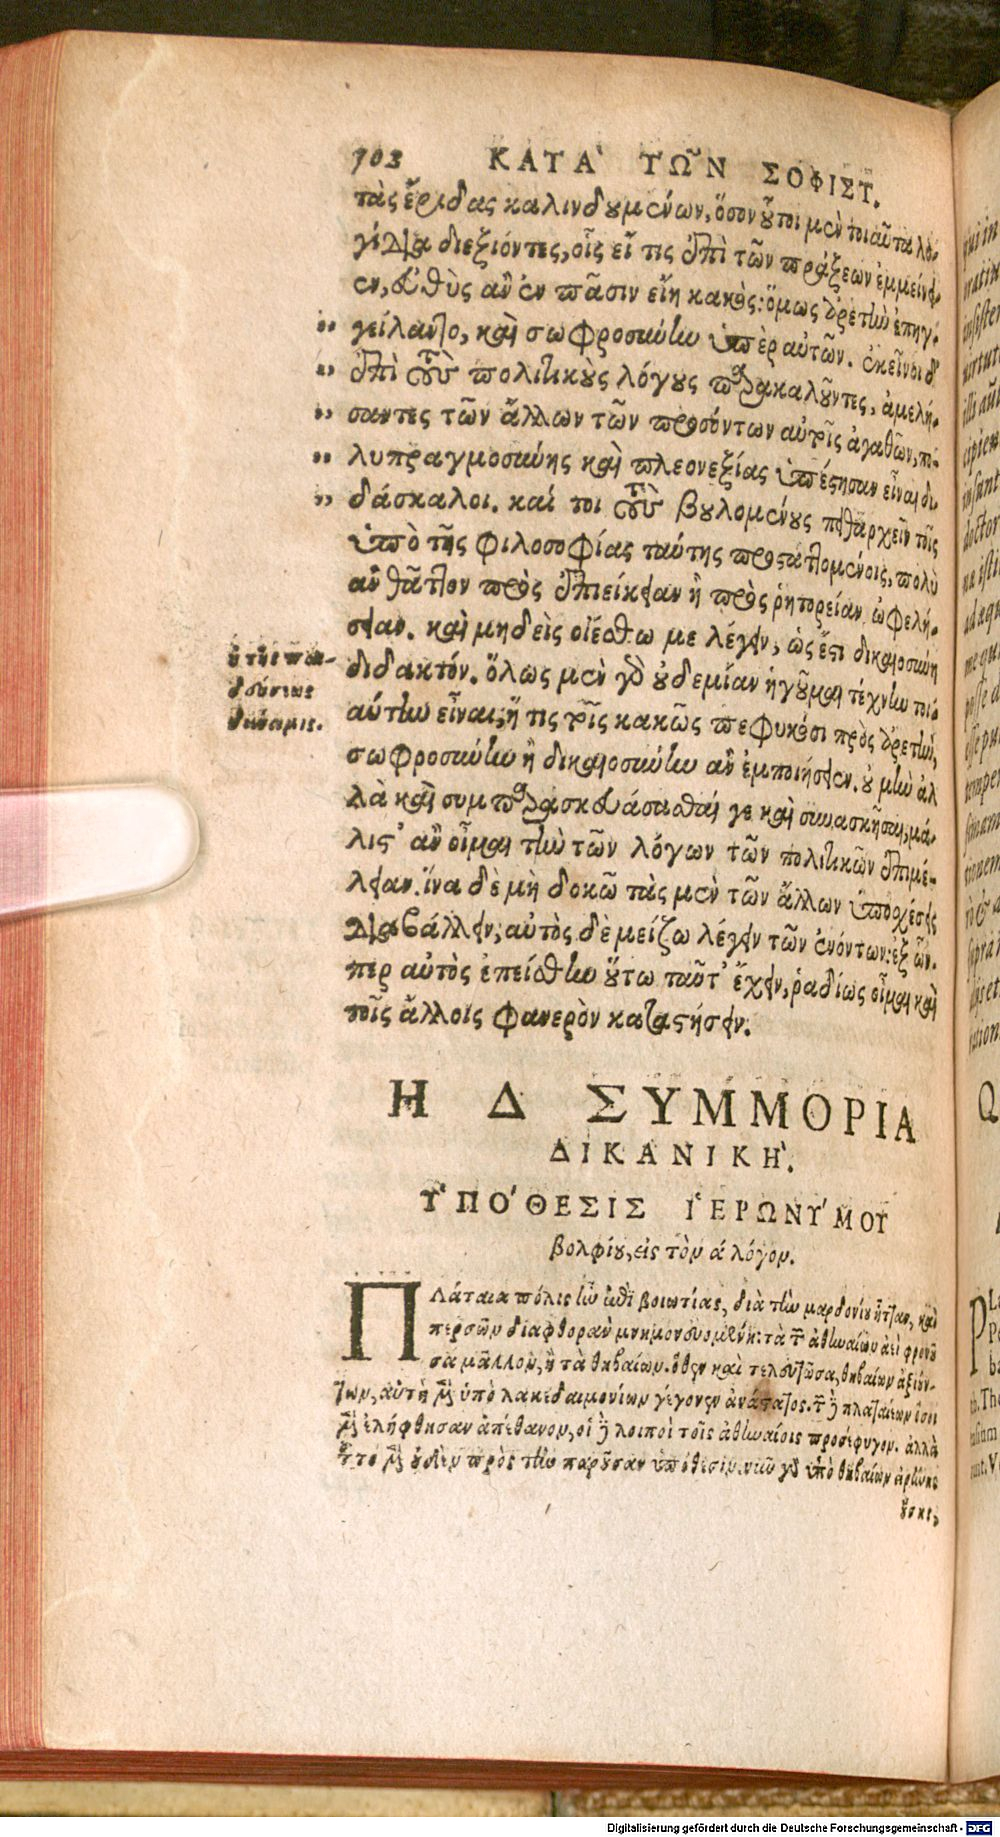 703 ΚΑΤᾺ ΤΩ͂Ν ΣΟΦΙΣΤ.
τὰς ἔριδας καλινδουμένων, ὅσον οὗτοι μὲν τοιαῦτα λο-
γίδια διεξιόντες, οἷς εἴ τις ἐπὶ τῶν πράξεων ἐμμείνει-
εν, εὐθὺς ἂν ἐν πᾶσιν εἴη κακοῖς: ὅμως ἀρετὴν ἐπηγ-
γείλαντο, καὶ σωφροσύνην ὑπὲρ αὐτῶν. ἐκεῖνοι δ'
ἐπὶ τοὺς πολιτικοὺς λόγους παρακαλοῦντες, ἀμελή-
σαντες τῶν ἄλλων τῶν προσόντων αὐτοῖς ἀγαθῶν, πο-
λυπραγμοσύνης καὶ πλεονεξίας ὑπέστησαν εἶναι δι-
δάσκαλοι. καί τοι τοὺς βουλομένους πειθαρχεῖν τοῖς
ὑπὸ τῆς φιλοσοφίας ταύτης προσταττομένοις, πολὺ
ἂν θᾶττον πρὸς ἐπιείκειαν ἢ πρὸς ῥητορείαν ὠφελή-
σειαν. καὶ μηδεὶς οἰέσθω με λέγειν, ὡς ἔστι δικαιοσύνη
διδακτόν. ὅλως μὲν γὸ οὐδεμίαν ἡγοῦμαι τέχνην τοι-
αύτην εἶναι, ἥ τις τοῖς κακῶς πεφυκόσι πρὸς ἀρετὴν,
σωφροσύνην ἢ δικαιοσύνην ἂν ἐμποιήσειεν. οὐ μὴν ἀλ
λὰ καὶ συμπαρασκευάσασθαί γε καὶ συνασκῆσαι, μά-
λιστ' ἂν οἶμαι τὴν τῶν λόγων τῶν πολιτικῶν ἐπιμέ-
λειαν. ἵνα δὲ μὴ δοκῶ τὰς μὲν τῶν ἄλλων ὑποσχέσεις
διαβάλλειν, αὐτὸς δὲ μείζω λέγειν τῶν ἐνόντων: ἐξ ὧν-
περ αὐτὸς ἐπείσθην οὕτω ταῦτ' ἔχειν, ῥαδίως οἶμαι καὶ
τοῖς ἄλλοις φανερὸν καταστήσειν.
ἡ τῆς παι-
δεύσεως
δύναμις.
Η Δ ΣΥΜΜΟΡΙΑ
ΔΙΚΑΝΙΚῊ.
Υ῾ΠΟ´ΘΕΣΙΣ Ι῾ΕΡΩΝΥ´ΜΟΥ
βολφίου, εἰς τὸν ά λόγον.
ΠΛάταια πόλις ἦν ἐπὶ βοιωτίας, διὰ τὴν μαρδονίου ἧτταν, καὶ
περσῶν διαφθορὰν μνημονευομένη: τὰ τῶν ἀθηναίων ἀεὶ φρονοῦ
σα μᾶλλον, ἢ τὰ θηβαίων. ὅθεν καὶ τελευτῶσα, θηβαίων ἀξιούν-
των, αὐτὴ μὲν ὑπὸ λακεδαιμονίων γέγονεν ἀνάστατος. τῶν δὲ πλαταιέων ὅσοι
μὲν ἐλήφθησαν ἀπέθανον, οἱ δὲ λοιποὶ τοῖς ἀθηναίοις προσέφυγον. ἀλλὰ
τοῦτο μὲν οὐδὲν πρὸς τὴν παροῦσαν ὑπόθεσιν. νῦν γὸ ὑπὸ θηβαίων
Digitalisierung gefördert durch die Deutsche Forschungsgemeinschaft - DFG